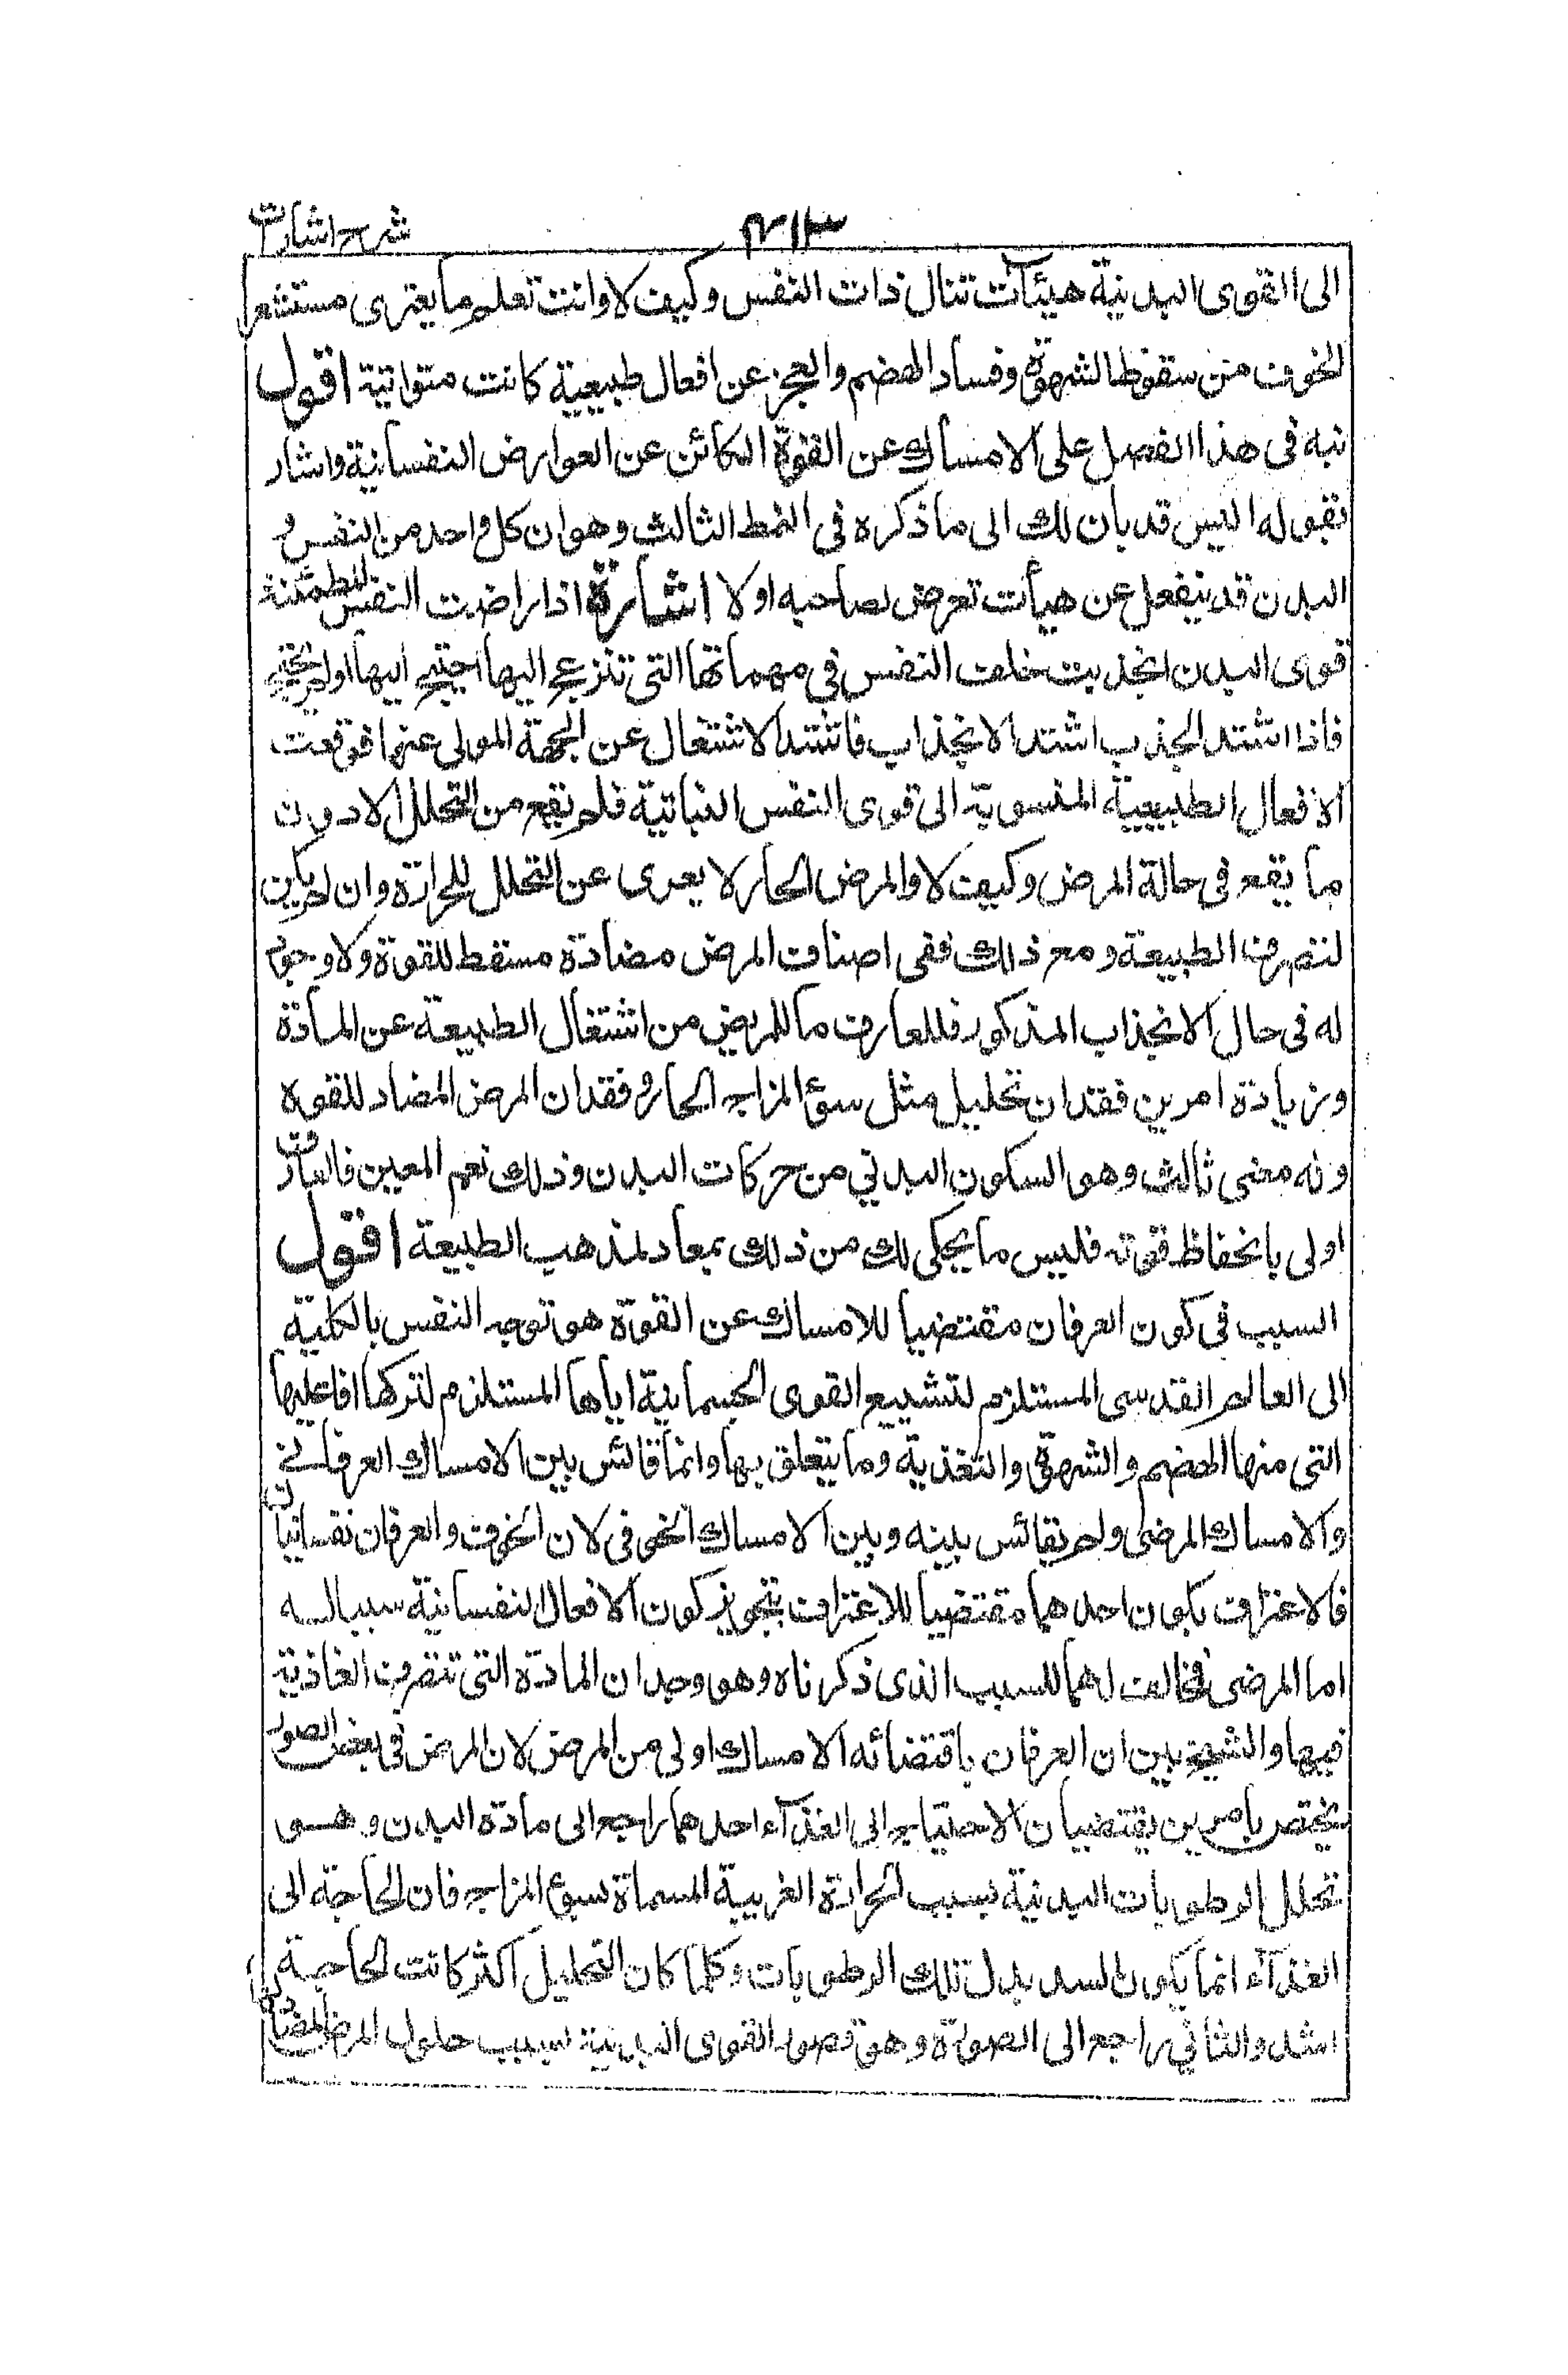 شرح اشارات
٤١٣
الى القوى البدنية هيئآت تنال ذات النفس وكيف لا وانت تعلم ما يعترى مستشعر
الخوف من سقوط الشهوة وفساد الهضم والعجز عن افعال طبيعية كانت متواتية اقول
نبه فى هذا الفصل على الامساك عن القوة الكائن عن العوارض النفسانية واشار
بقوله اليس قد بان لك الى ما ذكره فى النمط الثالث وهو ان كل واحد من النفس و
البدن قد ينفعل عن هيأت تعرض لصاحبه اولا اشارة اذا راضت النفس المطمئنة
قوى البدن انجذبت خلف النفس فى مهماتها التى تنزعج اليها احتيج اليها اولم يحتج
فاذا اشتد الجذب اشتد الانجذاب فاشتد الاشتغال عن الجهة المولى عنها فوقعت
الافعال الطبيعية المنسوبة الى قوى النفس النباتية فلم يقع من التحلل الا دون
ما يقع فى حالة المرض وكيف لا والمرض الحار لا يعرى عن التحلل للحرارة وان لم يكن
لتصرف الطبيعة ومع ذلك ففى اصناف المرض مضادة مسقط للقوة ولا وجود
له فى حال الانجذاب المذكور فللعارف ما للمريض من اشتغال الطبيعة عن المادة
وزيادة امرين فقدان تحليل مثل سوء المزاج الحار وفقدان المرض المضاد للقوة
وله معنى ثالث وهو السكون البدنى من حركات البدن وذلك نعم المعين فالعارف
اولى بانحفاظ قوته فليس ما يحكى لك من ذلك بمعاد لمذهب الطبيعة اقول
السبب فى كون العرفان مقتضيا للامساك عن القوة هو توجه النفس بالكلية
الى العالم القدسى المستلزم لتشييع القوى الجسمانية اياها المستلزم لتركها افاعيلها
التى منها الهضم والشهوة والتغذية وما يتعلق بها وانما قائس بين الامساك العرفانى
والامساك المرضى ولم يقائس بينه وبين الامساك الخوفى لان الخوف والعرفان نفسانيان
فالاعتراف بكون احدهما مقتضيا للاعتراف بتجويز كون الافعال النفسانية سببا له
اما المرضى فمخالف لهما للسبب الذى ذكرناه وهو وجدان المادة التى تتصرف الغاذية
فيها والشيخ بين ان العرفان باقتضائه الامساك اولى من المرض لان المرض فى بعض الصور
يختص بامرين يقتضيان الاحتياج الى الغذآء احدهما راجع الى مادة البدن وهو
تحلل الرطوبات البدنية بسبب الحرارة الغريبة المسماة بسوء المزاج فان الحاجة الى
الغذآء انما يكون لسد بدل تلك الرطوبات وكلما كان التحليل اكثر كانت الحاجة
اشد والثانى راجع الى الصورة وهو قصور القوى البدنية بسبب حلول المرض المضاد